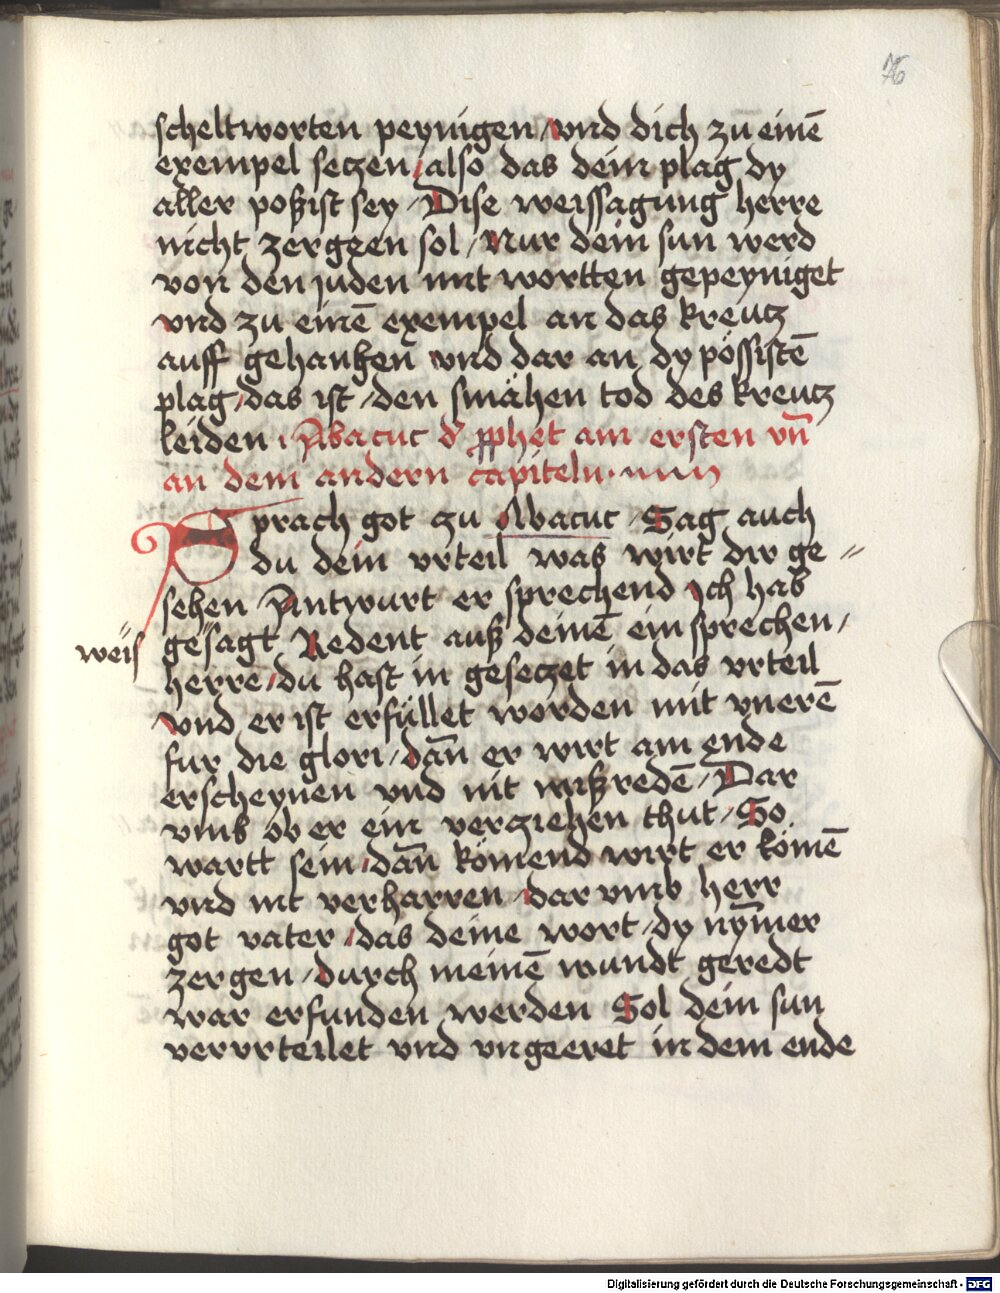 76
scheltworten peynigen / vnd dich zu einē
exempel seczen / also das dein plag dy
aller poßist sey / Dise weissagung herre
nicht zergeen sol / Nur dein sun werd
von den juden mit wortten gepeyniget
vnd zu einē exempel an das kreutz
auff gehangen vnd dar an dy pössistē
plag / das ist / den smähen tod des kreutz
leiden . Abacuc d' pphet am ersten vn̄
an dem andern capiteln .
Sprach got zu Abacuc / Sag auch
du dein vrteil was wirt dir ge //
sehen / Antwurt er sprechend Ich hab
gesagt Redent auß deinē einsprechen /
weis
herre / du hast in geseczet in das vrteil
vnd er ist erfüllet worden mit vnerē
fur die glori / dan̄ er wirt am ende
erscheynen vnd nit mißredē / Dar
vmb ob er ein verziehen thut / So
wartt sein / dan̄ kömend wirt er kömē
vnd nit verharren / dar vmb herr
got vater / das deine wort / dy nym̄er
zergen / durch meinē mundt geredt
war erfunden werden Sol dein sun
vervrteilet vnd vngeeret in dem ende
Digitalisierung gefördert durch die Deutsche Forschungsgemeinschaft - DFG